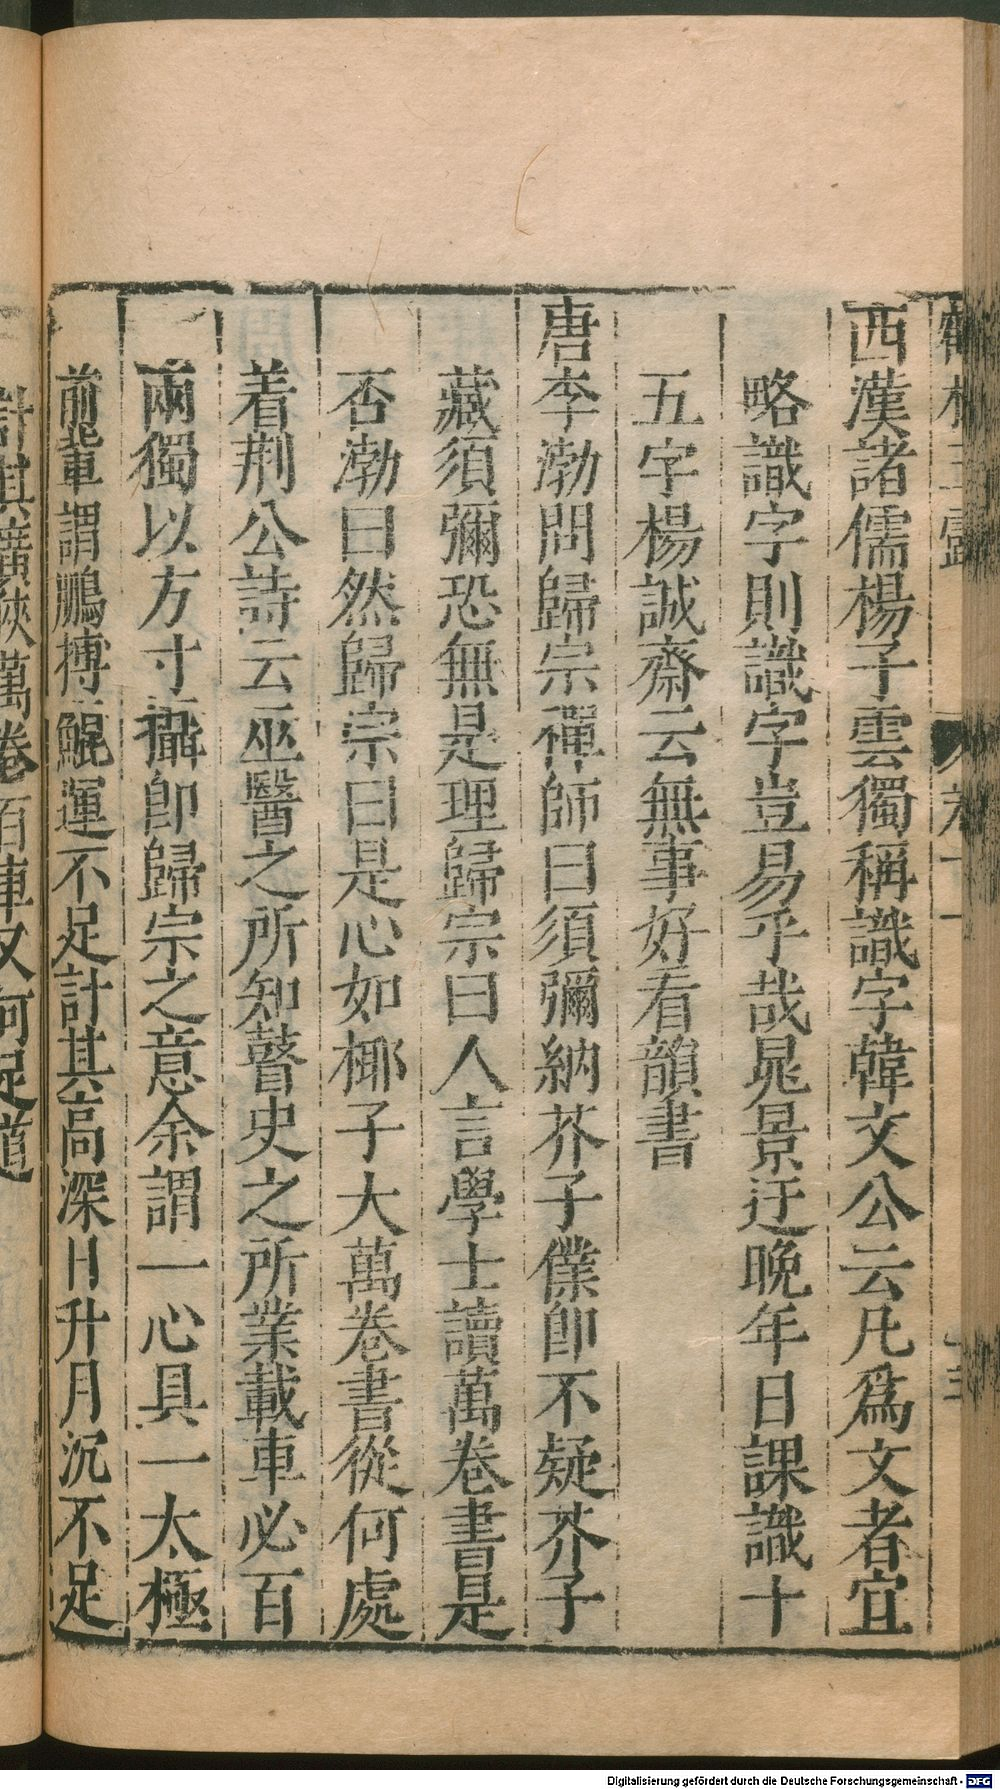 西漢諸儒楊子雲獨稱識字韓文公云凡爲文者宜
略識字則識字豈易乎哉晁景迂晚年日課識十
五字楊誠齋云無事好看韻書
唐李渤問歸宗禪師曰須彌納芥子僕卽不疑芥子
藏須彌恐無是理歸宗曰人言學士讀萬卷書是
否渤曰然歸宗曰是心如椰子大萬卷書從何處
着荆公詩云巫醫之所知瞽史之所業載車必百
兩獨以方寸攝卽歸宗之意余謂一心具一太極
前輩謂鵬搏鯤運不足計其高深日升月沉不足
計其廣狹萬卷百車又何足道
Digitalisierung gefördert durch die Deutsche Forschungsgemeinschaft - DFG